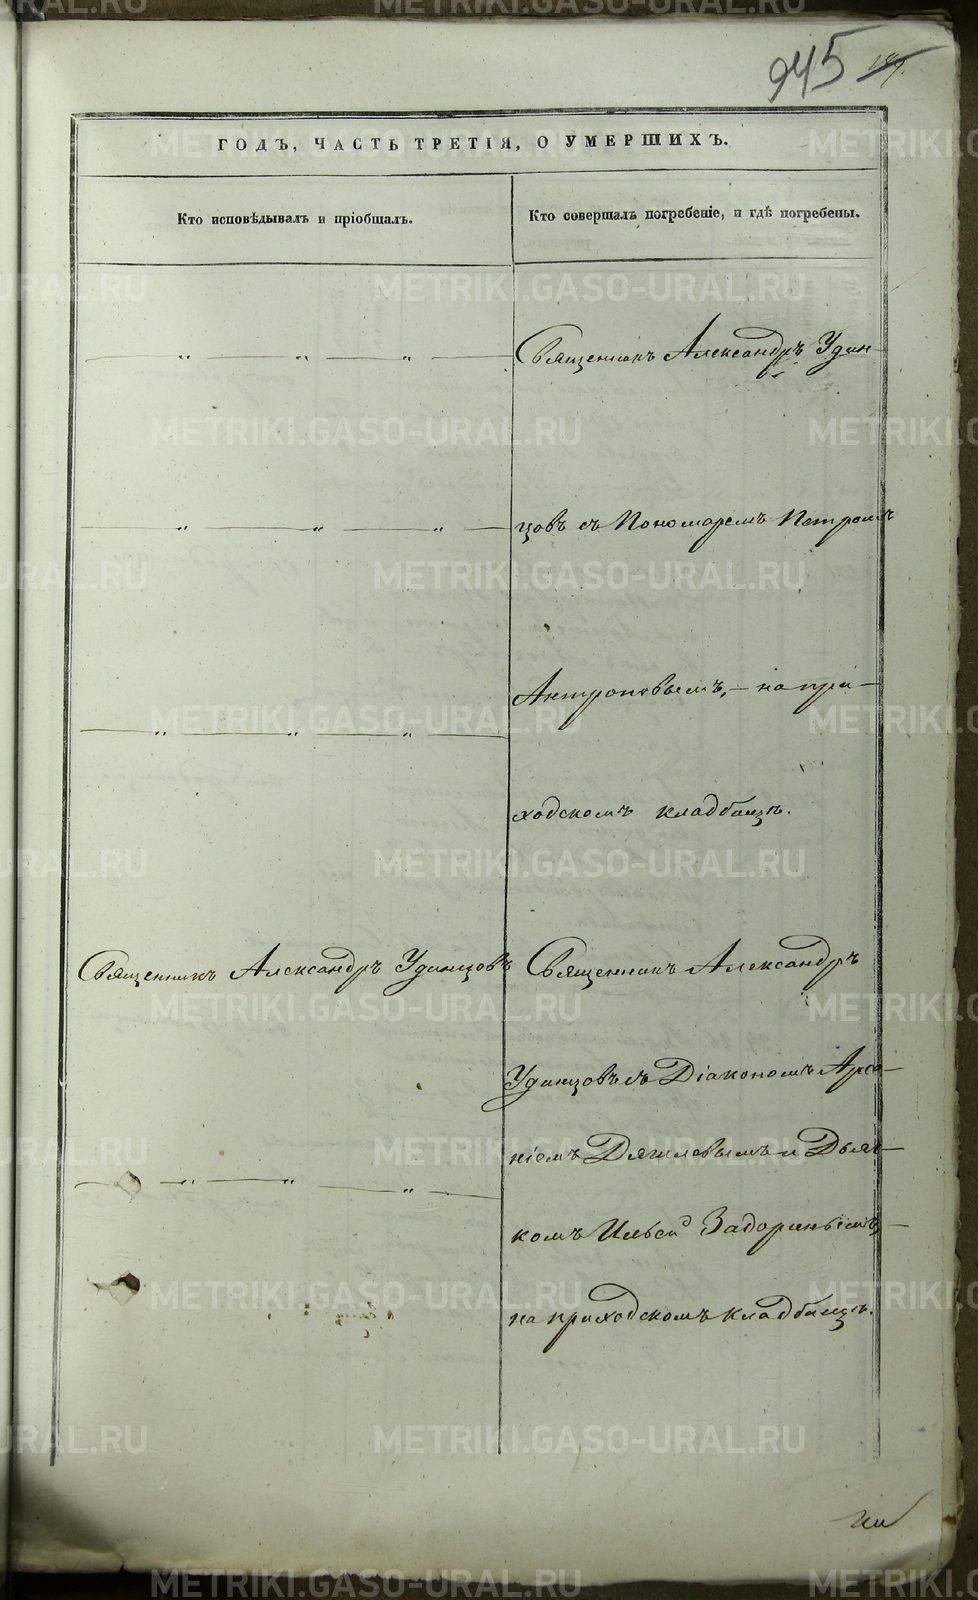 945
ГОДЪ, ЧАСТЬ ТРЕТІЯ, О УМЕРШИХЪ.
Кто исповѣдывалъ и пріобщалъ.
Кто совершалъ погребеніе, и гдѣ погребены.
Священникъ Александръ Удин-
цовъ съ Пономаремъ Петромъ
Антроповымъ, - на при-
ходскомъ кладбищѣ.
Священникъ Александръ Удинцовъ
Священникъ Александръ
Удинцовъ съ Діакономъ Арсе-
ніемъ Дягилевымъ и Дьяч-
комъ Ильей Задоринымъ, -
на приходскомъ кладбищѣ.
METRIKI.GASO-URAL.RU